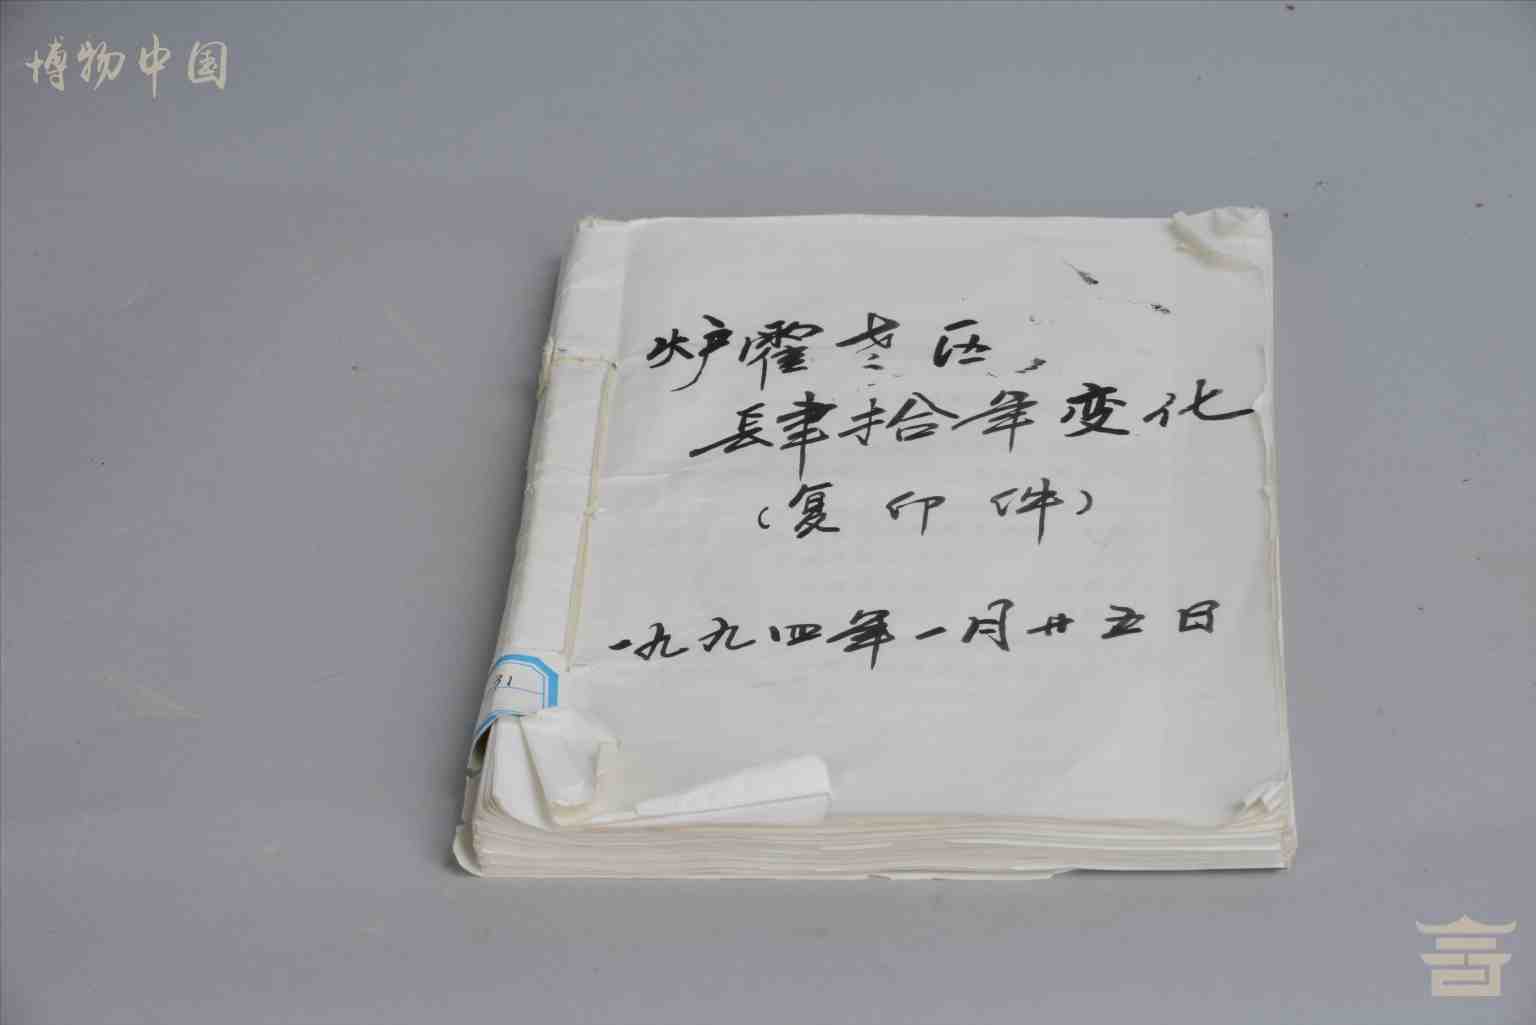 博物中国
炉霍老区
肆拾年变化
（复印件）
一九九四年一月廿五日
31